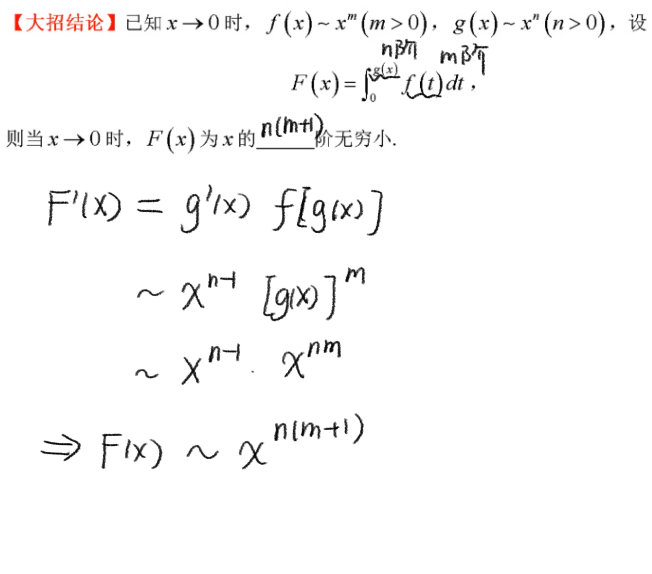 【大招结论】已知 x→0 时，f(x)~x^m(m>0)，g(x)~x^n(n>0)，设
n阶 m阶
F(x)=∫_0^{g(x)} f(t)dt，
则当 x→0 时，F(x) 为 x 的 n(m+1) 阶无穷小.
F'(x) = g'(x) f[g(x)]
~ x^{n-1} [g(x)]^m
~ x^{n-1} · x^{nm}
⇒ F(x) ~ x^{n(m+1)}